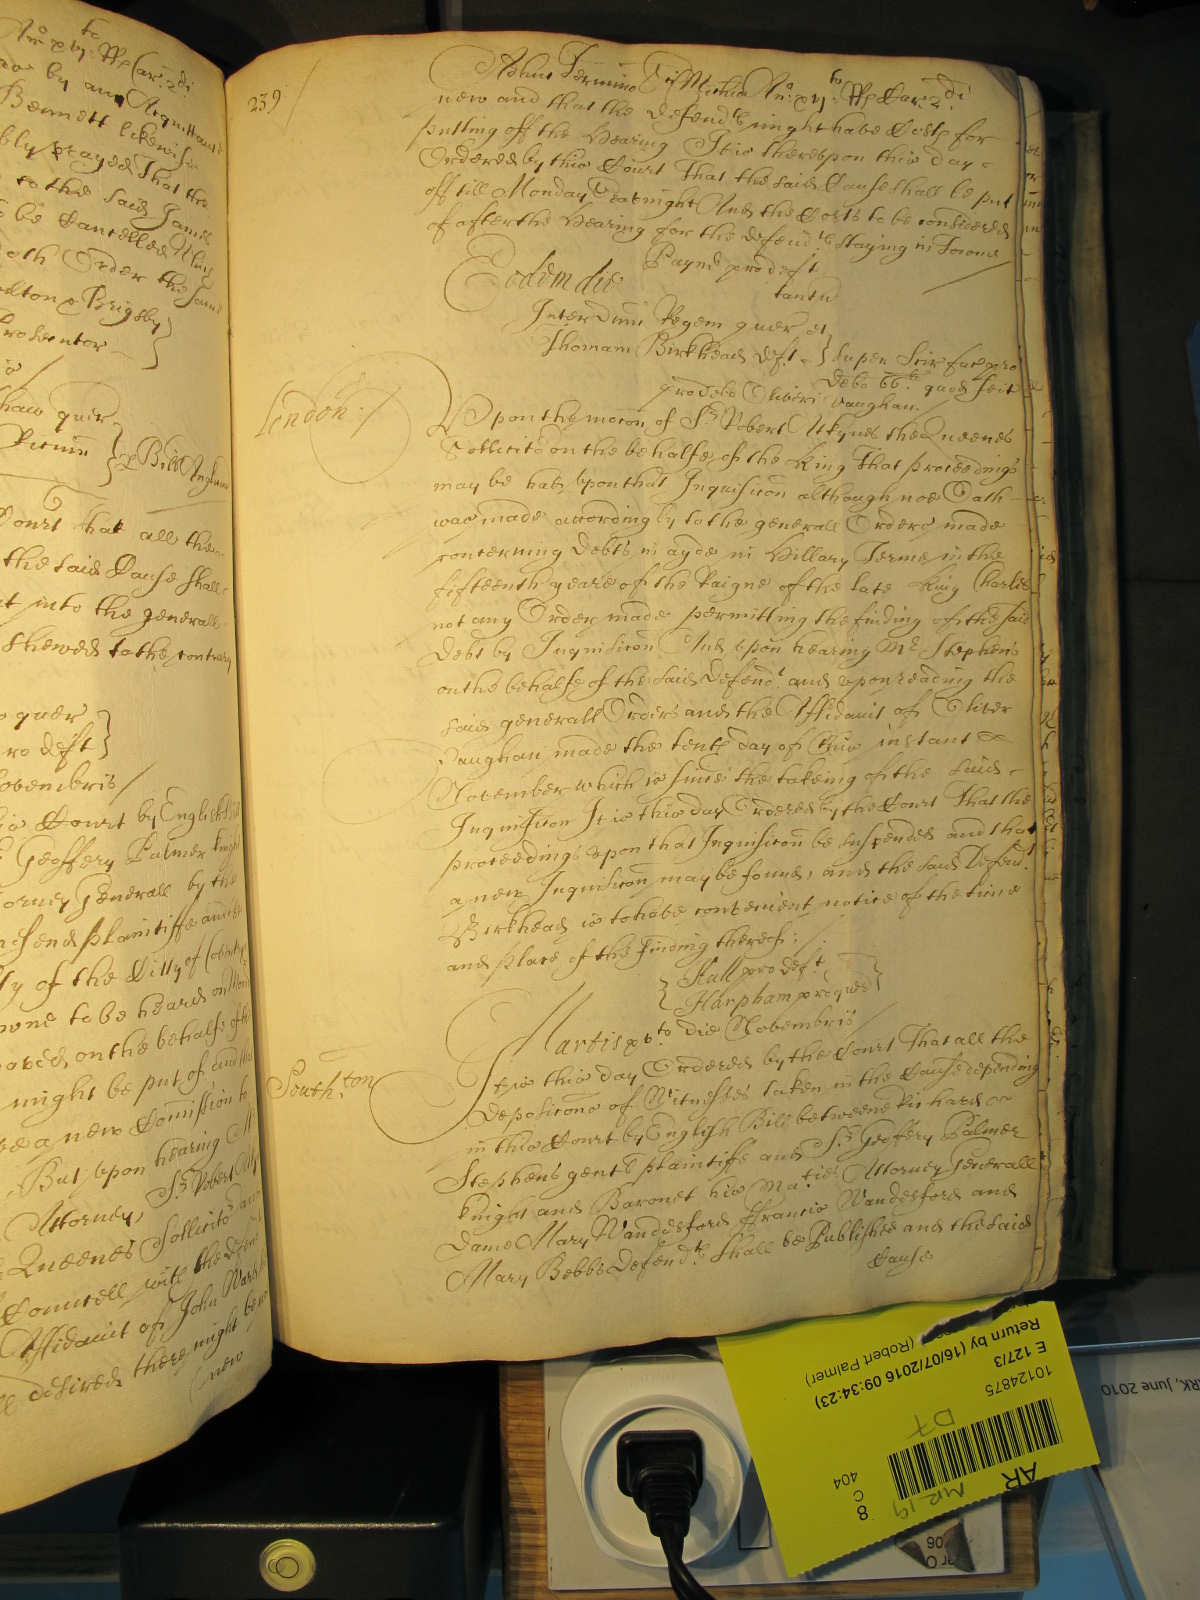 Anno xvj.to RRs Car: 2.di
Bennett likewise
bly prayed That the
to the said James
to be Cancelled
oth Order the same
lton & Brigsby
Prosecutor
haw quer
Court that all the
the said Cause shall
t into the generall
shewed to the contrary
quer
ro deft
Novembris
is Court by English Bill
Geoffery Palmer knight
torney Generall by the
plaintiffe and the
ty of the Citty of Coventry
to be heard on
moved on the behalfe of
might be put of and
a new Commission to
But upon hearing
Attorney, Sr. Robert
Queenes Sollicitor
Councell with the
Affidavit of John
desired there might be
new
239
Adhuc Termino Sci Michis Ano: xvj.to RRs Car: 2.di
new and that the Defend.ts might have Costs for
putting off the Hearing It is thereupon this day
Ordered by this Court That the said Cause shall be put
off till Monday Seavnight And the Costs to be considered
of after the Hearing for the defend.ts staying in Towne
Payne pro deft
tantu
Eodem die
Inter Dnm Regem quer et
Thomam Birkhead deft
Super Scir fac pro
Debo 66.li quod fuit
pro debo Oliveri Vaughan.
London:/
Upon the mocon of Sr. Robert Atkyns the Queenes
Sollicitor on the behalfe of the King That proceedings
may be had upon that Inquisicon although noe Oath
was made accordingly to the generall Orders made
concerning Debts in ayde in Hillary Terme in the
fifteenth yeare of the Raigne of the late King Charles
not any Order made permitting the finding of the said
Debt by Inquisicon And upon hearing Mr. Stephens
on the behalfe of the said Defend.t and upon reading the
said generall Orders and the Affidavit of Oliver
Vaughan made the tenth day of this instant
November which is since the takeing of the said
Inquisicon It is this day Ordered by the Court That the
proceedings upon that Inquisicon be suspended and that
a new Inquisicon may be found, and the said Defend.t
Birkhead is to have convenient notice of the time
and place of the Finding thereof:
Hall pro deft
Harpham pro quer
Martis xv.to die Novembris
South:ton
It is this day Ordered by the Court That all the
deposicons of Witnesses taken in the Cause depending
in this Court by English Bill betweene Richard
Stephens gent plaintiffe and Sr. Geoffery Palmer
knight and Baronet his Ma.ties Attorney Generall
Dame Mary Wandesford Francis Wandesford and
Mary Bebbe Defend.ts shall be Published and the said
Cause
Return by (16/07/2016 09:34:23)
(Robert Palmer)
E 127/3
10124875
D7
AR
MR 19
8
C
404
RK, June 2010